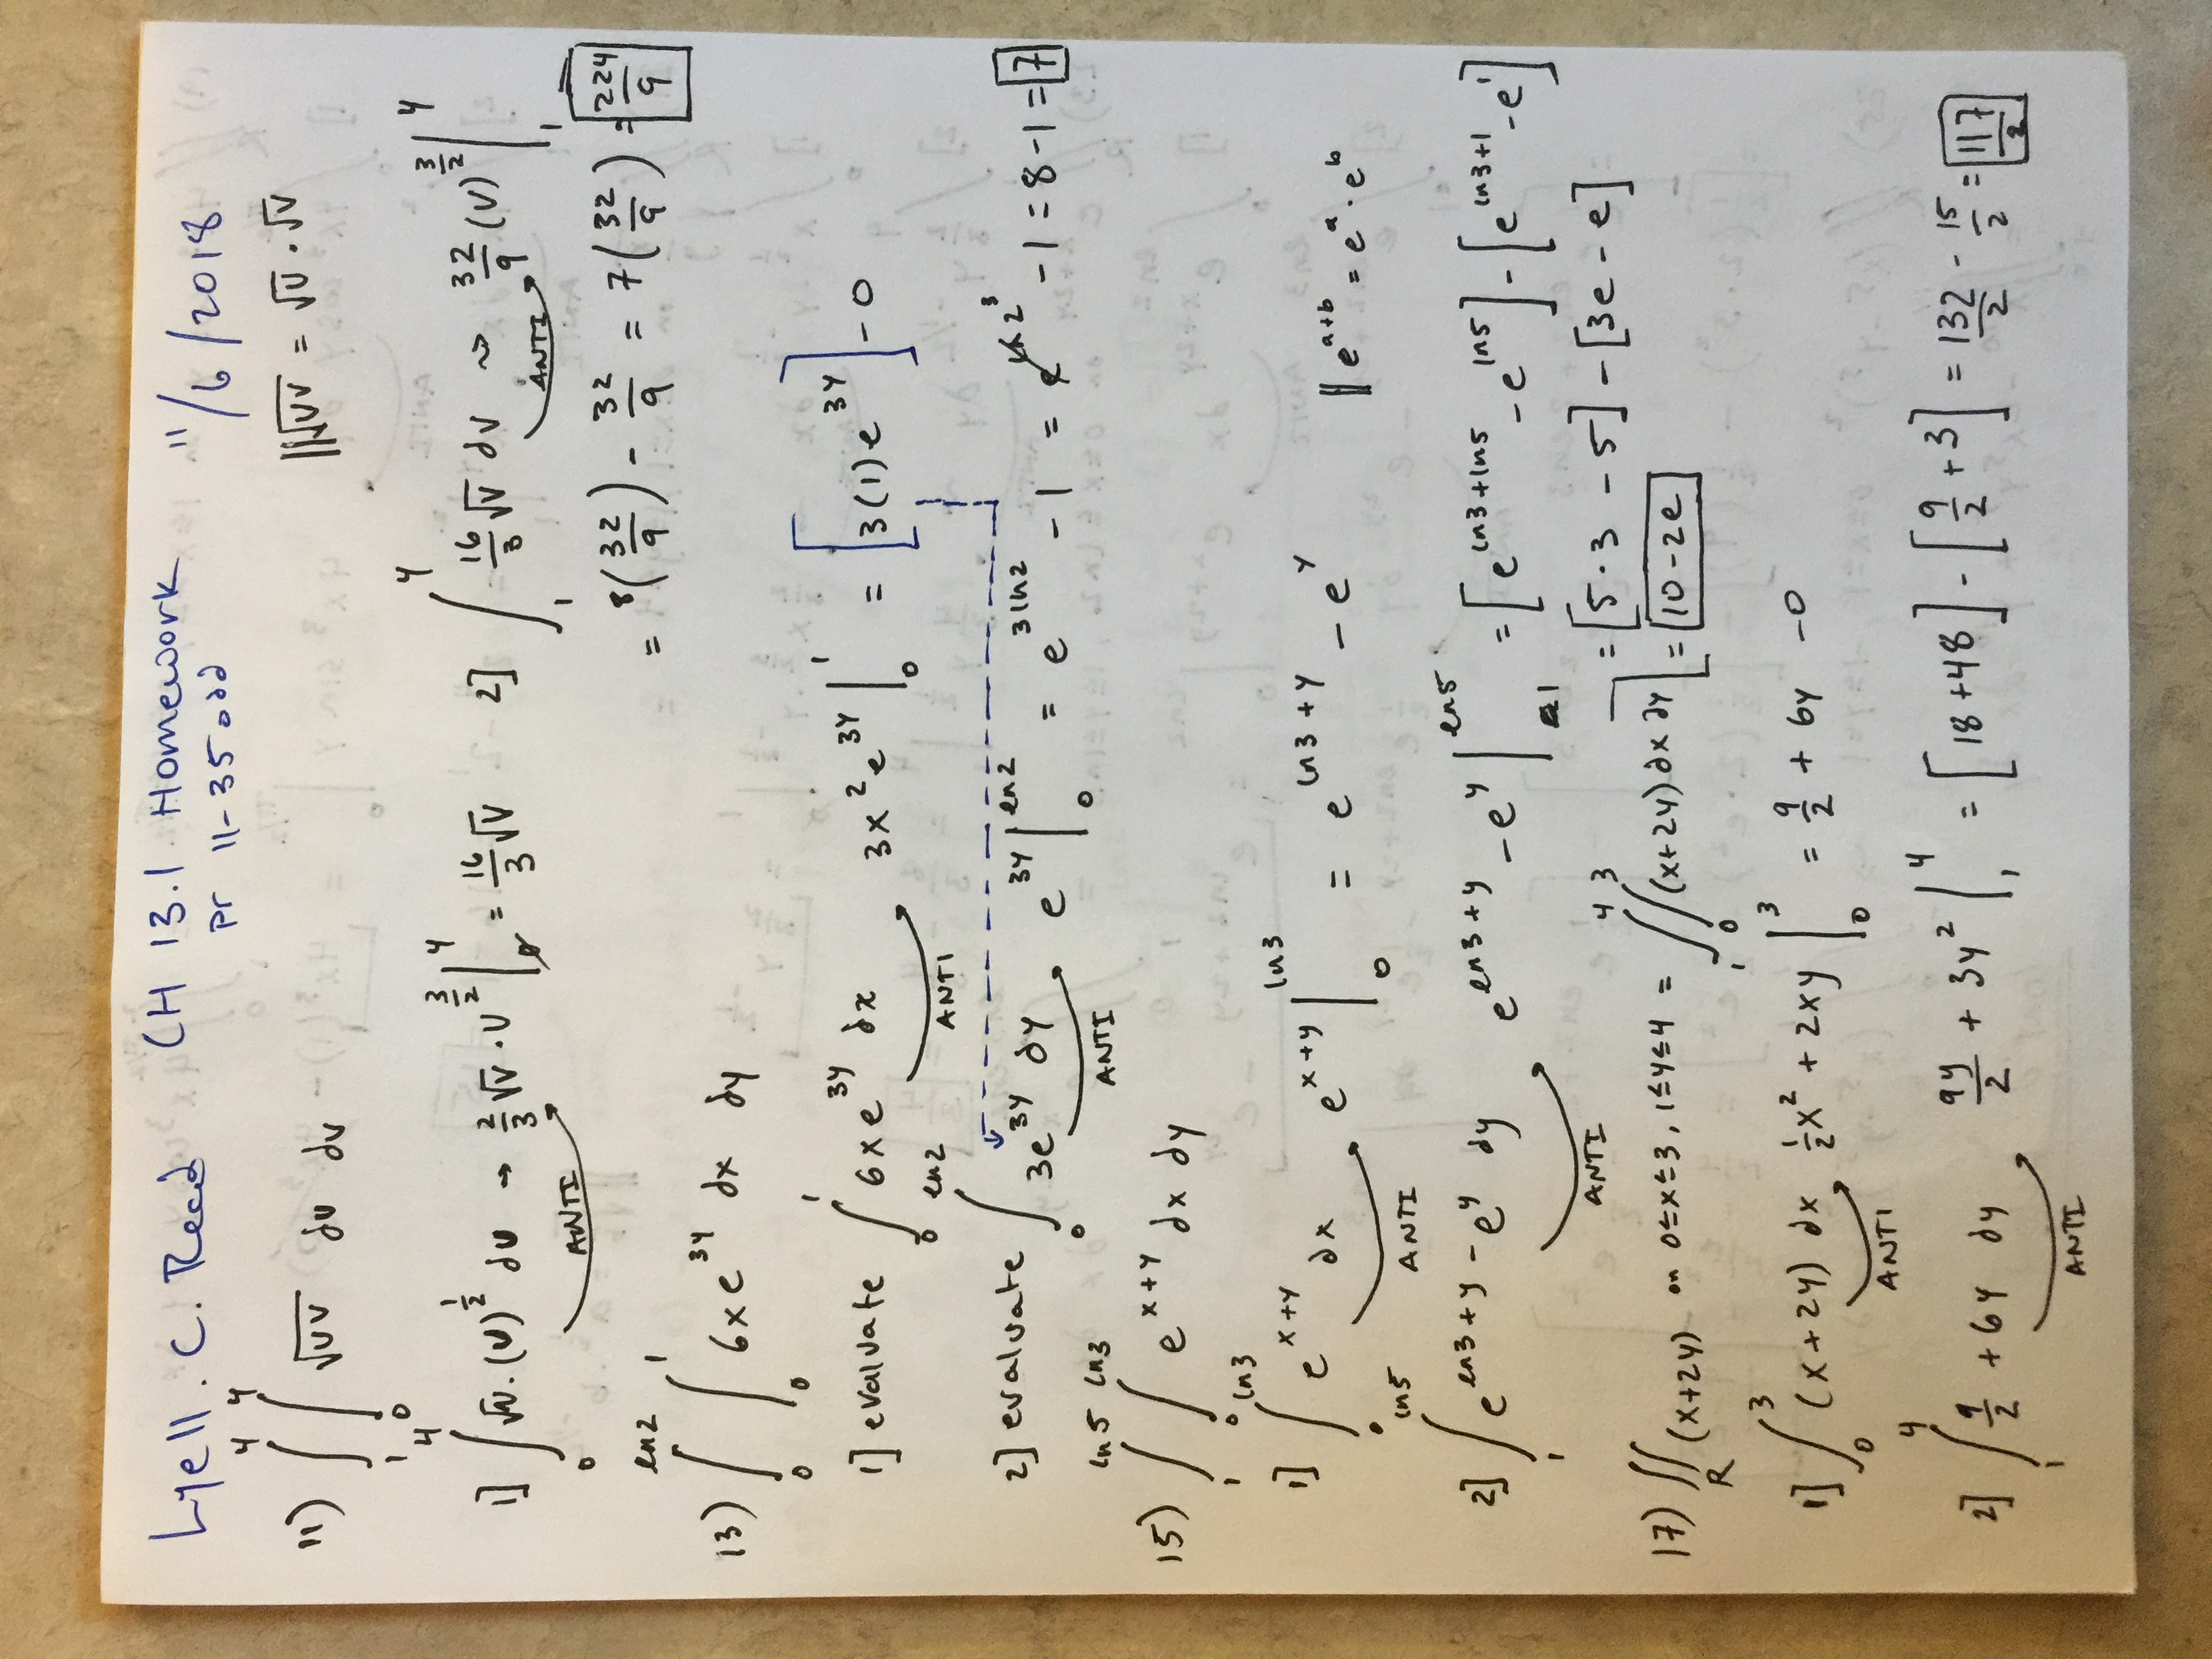 Lyell. C. Read CH 13.1 Homework 11/6/2018
pr 11-35 odd
11) ∫₁⁴ ∫₀⁴ √uv du dv ||√uv = √u · √v
1] ∫₀⁴ √v · (u)^(1/2) du → 2/3 √v · u^(3/2) |₀⁴ = 16/3 √v 2] ∫₁⁴ 16/3 √v dv ⇝ 32/9 (v)^(3/2) |₁⁴
ANTI ANTI
= 8(32/9) - 32/9 = 7(32/9) = 224/9
13) ∫₀^(ln2) ∫₀¹ 6xe^(3y) dx dy
1] evaluate ∫₀¹ 6xe^(3y) dx 3x²e^(3y) |₀¹ = [3(1)e^(3y)] - 0
ANTI
2] evaluate ∫₀^(ln2) 3e^(3y) dy e^(3y) |₀^(ln2) = e^(3ln2) - 1 = e^(ln2³) - 1 = 8 - 1 = 7
ANTI
15) ∫₁^(ln5) ∫₀^(ln3) e^(x+y) dx dy
1] ∫₀^(ln3) e^(x+y) dx e^(x+y) |₀^(ln3) = e^(ln3+y) - e^y || e^(a+b) = e^a · e^b
ANTI
2] ∫₁^(ln5) e^(ln3+y) - e^y dy e^(ln3+y) - e^y |₁^(ln5) = [e^(ln3+ln5) - e^(ln5)] - [e^(ln3+1) - e^1]
ANTI
= [5·3 - 5] - [3e - e]
= 10-2e
17) ∬_R (x+2y) on 0≤x≤3, 1≤y≤4 = ∫₁⁴ ∫₀³ (x+2y) dx dy
1] ∫₀³ (x+2y) dx 1/2 x² + 2xy |₀³ = 9/2 + 6y - 0
ANTI
2] ∫₁⁴ 9/2 + 6y dy 9y/2 + 3y² |₁⁴ = [18+48] - [9/2 + 3] = 132/2 - 15/2 = 117/2
ANTI